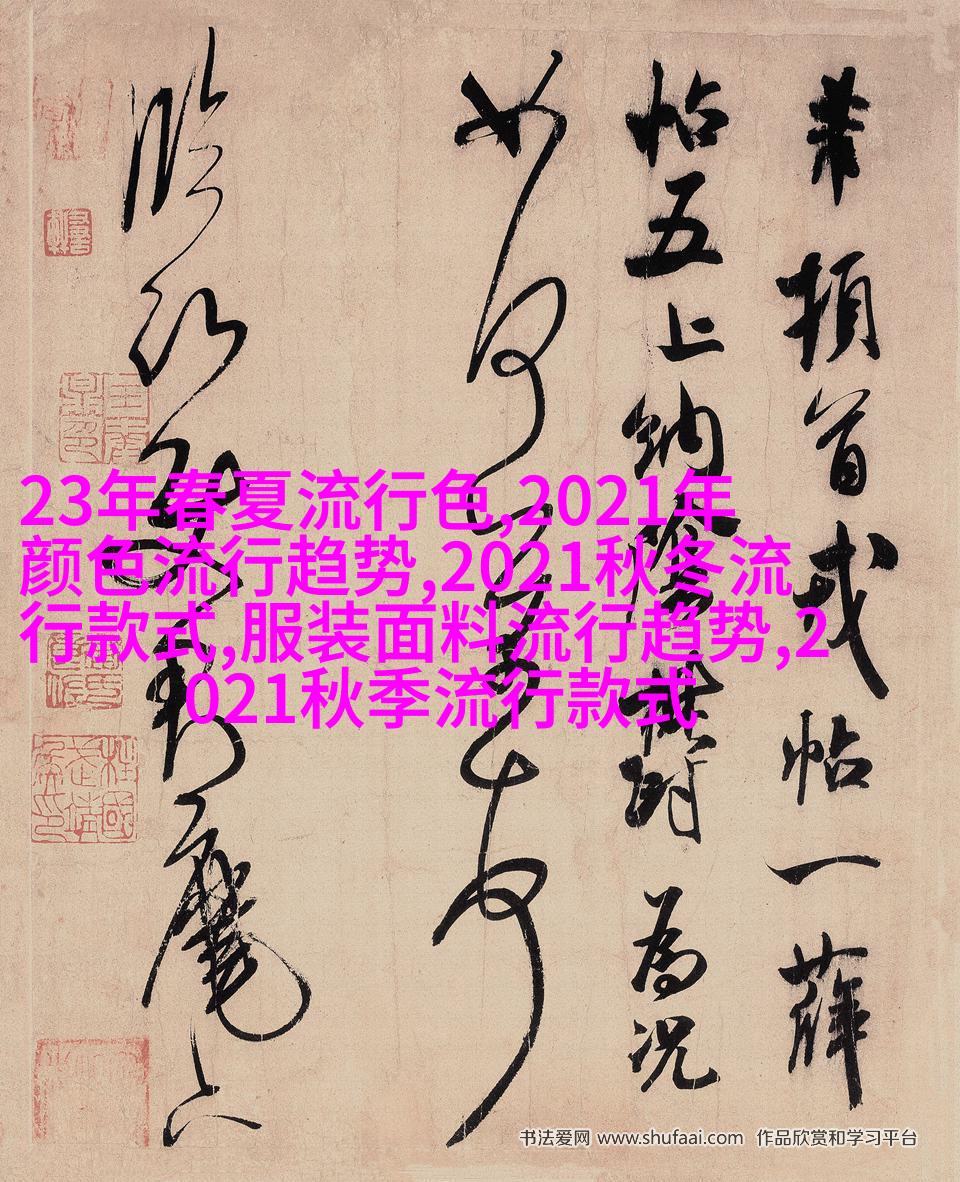 芾頓首戎帖一薛
帖五上納陰鬱為況
如何芾頓首
臨沂使君麾下
23年春夏流行色,2021年
颜色流行趋势,2021秋冬流
行款式,服装面料流行趋势,2
021秋季流行款式
书法爱网 www.shufaai.com 作品欣赏和学习平台